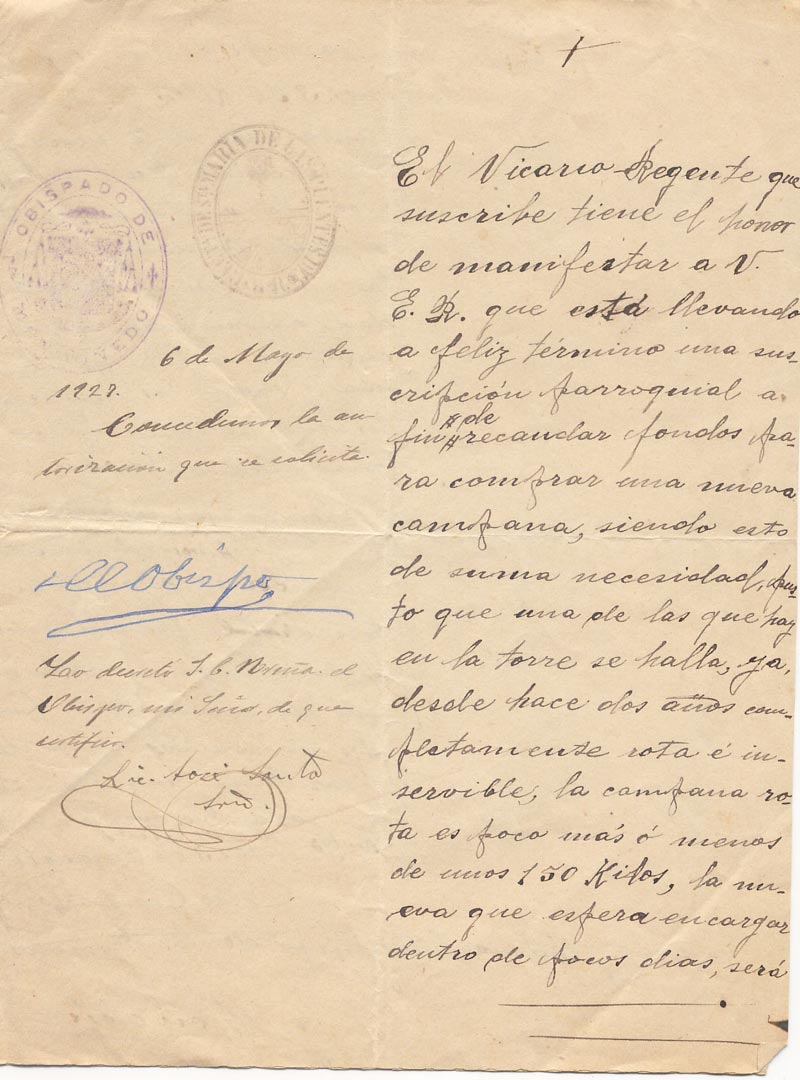 OBISPADO DE
6 de Mayo de
1927.
Concedemos la au-
torización que se solicita.
El Obispo
Lo decretó S. E. Rvma. el
Obispo, mi Señor, de que
certifico.
Lic. José
Srio.
El Vicario Regente que
suscribe tiene el honor
de manifestar a V.
E. R. que está llevando
a feliz término una sus-
cripción parroquial a
fin de recaudar fondos pa-
ra comprar una nueva
campana, siendo esto
de suma necesidad, pues-
to que una de las que hay
en la torre se halla, ya,
desde hace dos años com-
pletamente rota é in-
servible, la campana ro-
ta es poco más ó menos
de unos 150 Kilos, la nu-
eva que espera encargar
dentro de pocos dias, será